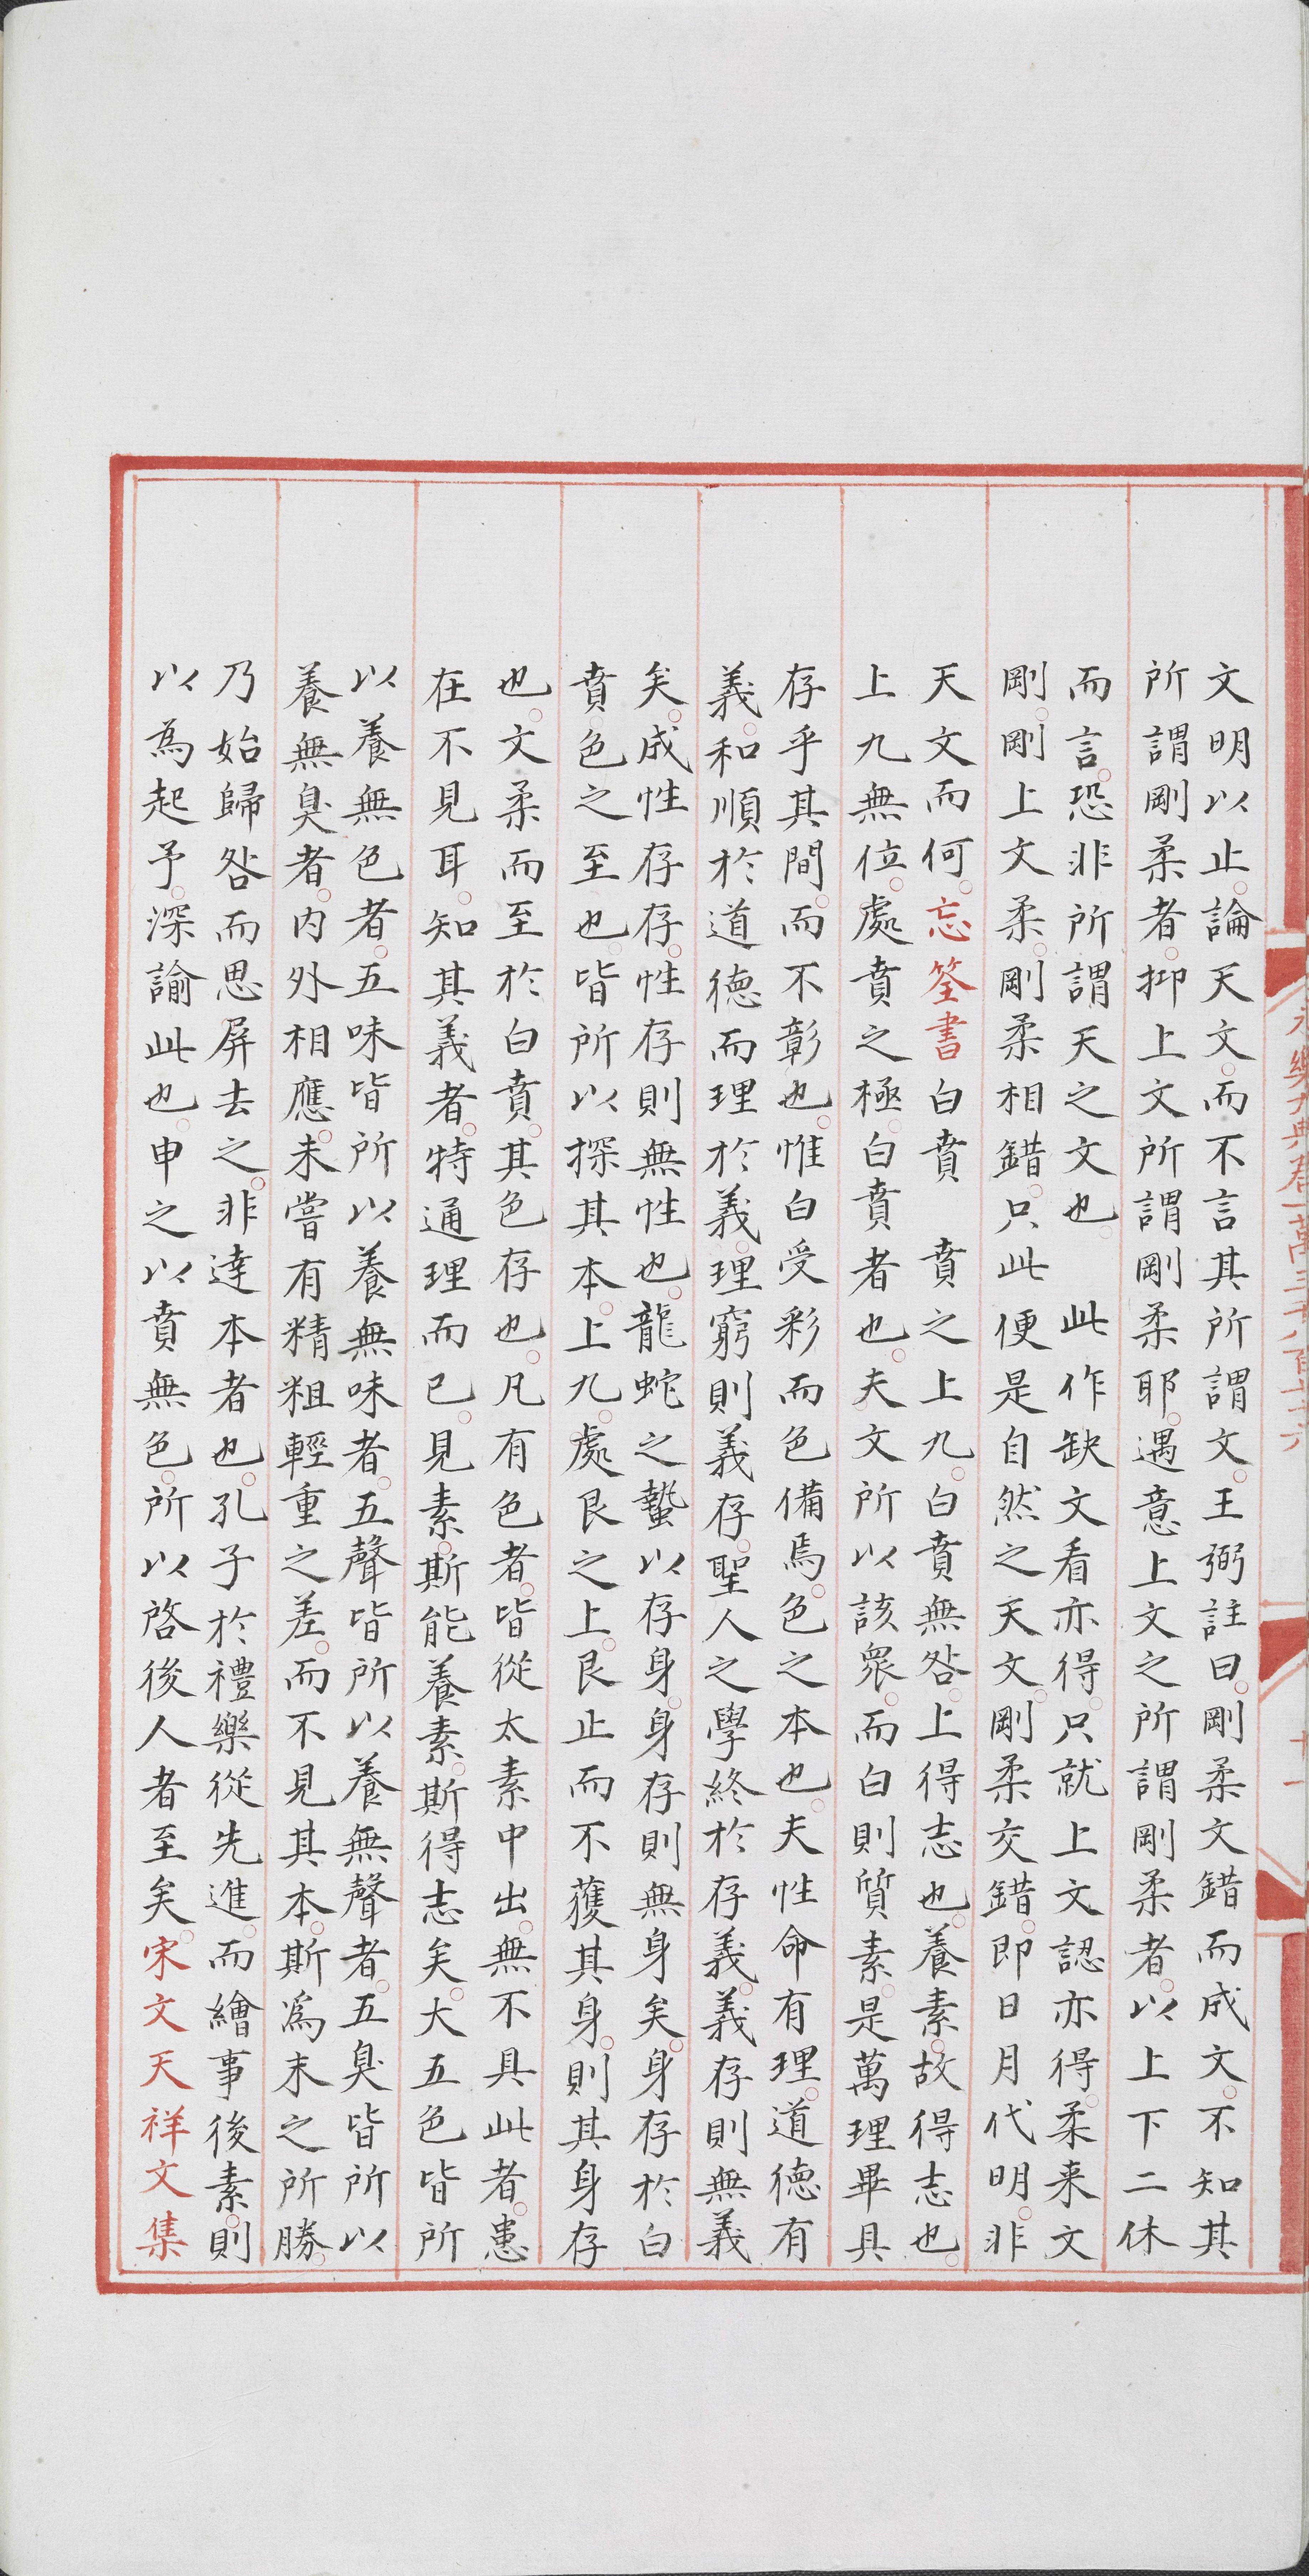 文明以止論天文而不言其所謂文王弼註曰剛柔文錯而成文不知其
所謂剛柔者抑上文所謂剛柔耶遇意上文之所謂剛柔者以上下二休
而言恐非所謂天之文也　此作缺文看亦得只就上文認亦得柔来文
剛剛上文柔剛柔相錯只此便是自然之天文剛柔交錯即日月代明非
天文而何忘筌書白賁　賁之上九白賁無咎上得志也養素故得志也
上九無位處賁之極白賁者也夫文所以該衆而白則質素是萬理畢具
存乎其間而不彰也惟白受彩而色備焉色之本也夫性命有理道德有
義和順於道德而理於義理窮則義存聖人之學終於存義義存則無義
矣成性存存性存則無性也龍蛇之蟄以存身身存則無身矣身存於白
賁色之至也皆所以探其本上九處艮之上艮止而不獲其身則其身存
也文柔而至於白賁其色存也凡有色者皆從太素中出無不具此者患
在不見耳知其義者特通理而已見素斯能養素斯得志矣大五色皆所
以養無色者五味皆所以養無味者五聲皆所以養無聲者五臭皆所以
養無臭者内外相應未嘗有精粗輕重之差而不見其本斯爲末之所勝
乃始歸咎而思屏去之非達本者也孔子於禮樂從先進而繪事後素則
以為起予深諭此也申之以賁無色所以啓後人者至矣宋文天祥文集
永樂大典卷一萬三千八百七十六
十一